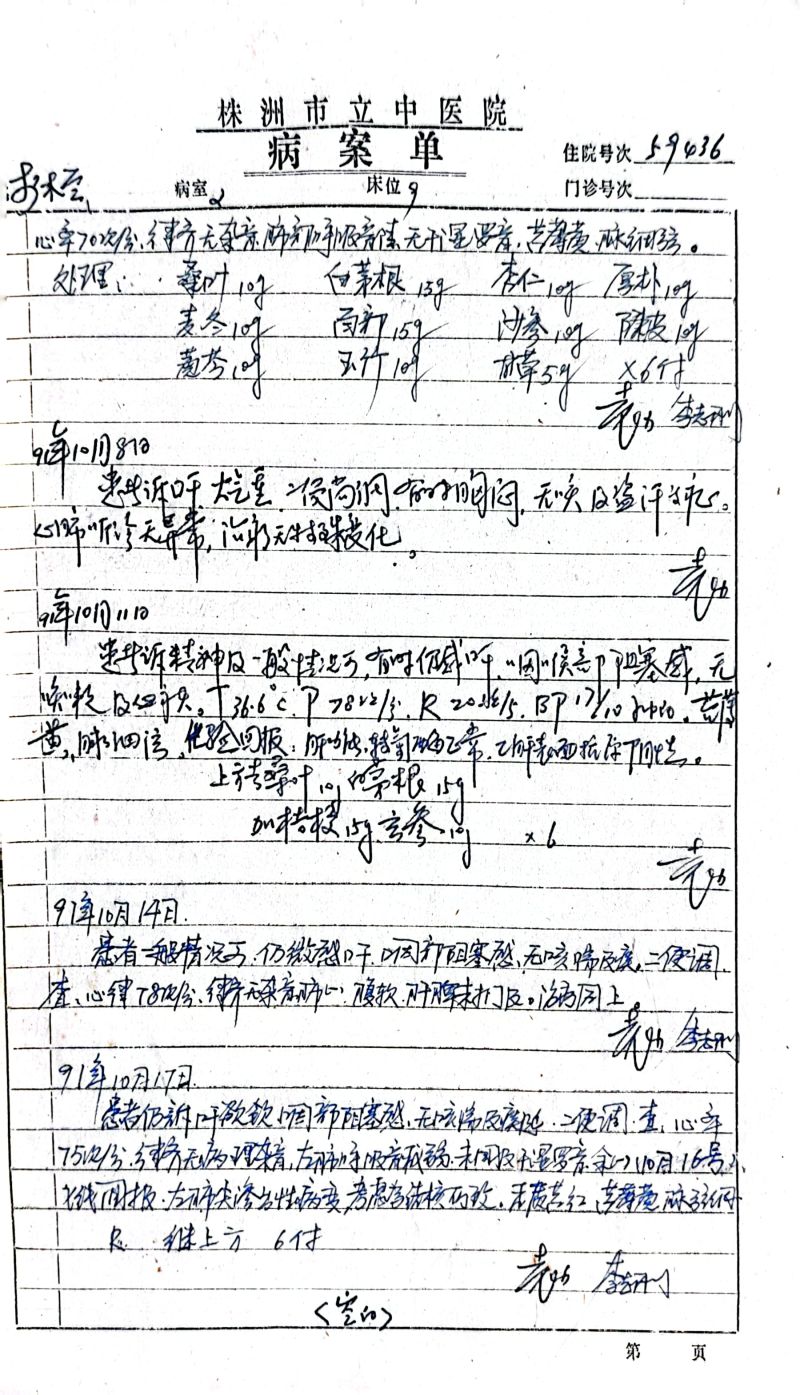 株洲市立中医院
病案单
住院号次 59436
病室 2 床位 9 门诊号次
心率70次/分、律齐无杂音,肺部呼吸音清,无干湿罗音,苔薄黄,脉细弦。
处理: 桑叶10g 白茅根15g 杏仁10g 厚朴10g
麦冬10g 百部15g 沙参10g 陈皮10g
黄芩10g 玉竹10g 甘草5g ×6付
袁 李志刚
91年10月8日
患者诉口干 二便尚调,有时胸闷,无咳及盗汗
心肺听诊无异常,治疗无特殊变化。
袁
91年10月11日
患者诉精神及一般情况可,有时仍感口干,咽喉部阻塞感,无
T 36.6℃ P 78次/分 R 20次/分 BP 17/10 苔薄
黄,脉细弦,化验回报:肝功能 正常,乙肝表面抗原阴性。
上方去桑叶10g 白茅根15g
加桔梗15g 玄参10g ×6
袁
91年10月14日.
患者一般情况可,仍微感口干,咽部阻塞感,无咳嗽及痰,二便调.
查:心律78次/分,律齐无杂音,肺(-),腹软,肝脾未扪及。治病同上。
袁 李志刚
91年10月17日.
患者仍诉口干欲饮,咽部阻塞感,无咳嗽及痰 二便调.查:心率
75次/分,律齐无病理杂音,左肺呼吸音减弱,未闻及干湿罗音,余(-) 10月16号
X线回报:左肺尖渗出性病变,考虑为结核所致。 苔薄黄,脉弦细
R. 继上方 6付
袁 李志刚
第 页